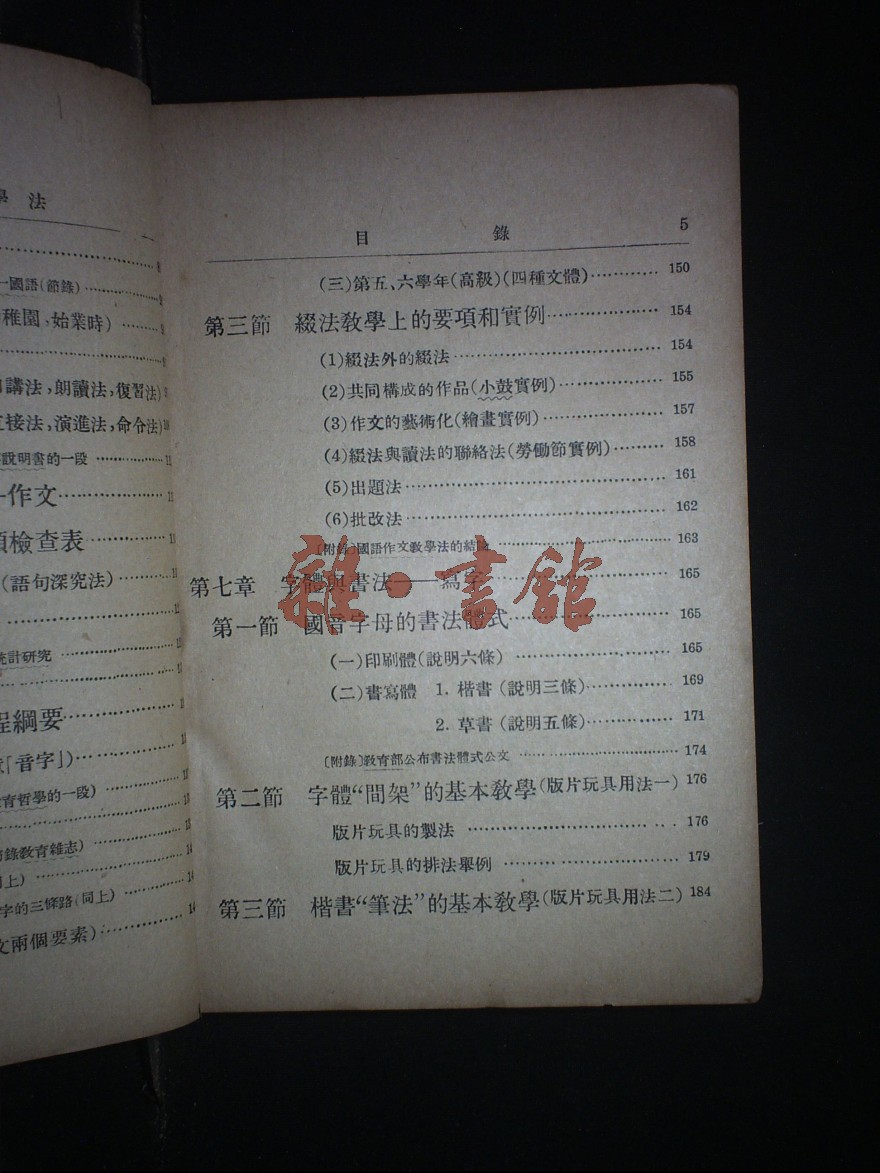 學 法
一國語(節錄)
稚園,始業時)
講法,朗讀法,復習法)
直接法,演進法,命令法)
說明書的一段 11
作文
檢查表
(語句深究法)
統計研究
程綱要
「音字」)
育哲學的一段)
錄教育雜志)
同上)
字的三條路(同上)
文兩個要素)
目 錄 5
(三)第五、六學年(高級)(四種文體) 150
第三節 綴法教學上的要項和實例 154
(1)綴法外的綴法 154
(2)共同構成的作品(小鼓實例) 155
(3)作文的藝術化(繪畫實例) 157
(4)綴法與讀法的聯絡法(勞働節實例) 158
(5)出題法 161
(6)批改法 162
〔附錄〕國語作文教學法的結論 163
第七章 字體與書法——寫字 165
第一節 國音字母的書法體式 165
(一)印刷體(說明六條) 165
(二)書寫體 1. 楷書(說明三條) 169
2. 草書(說明五條) 171
〔附錄〕教育部公布書法體式公文 174
第二節 字體“間架”的基本教學(版片玩具用法一) 176
版片玩具的製法 176
版片玩具的排法舉例 179
第三節 楷書“筆法”的基本教學(版片玩具用法二) 184
雜·書館